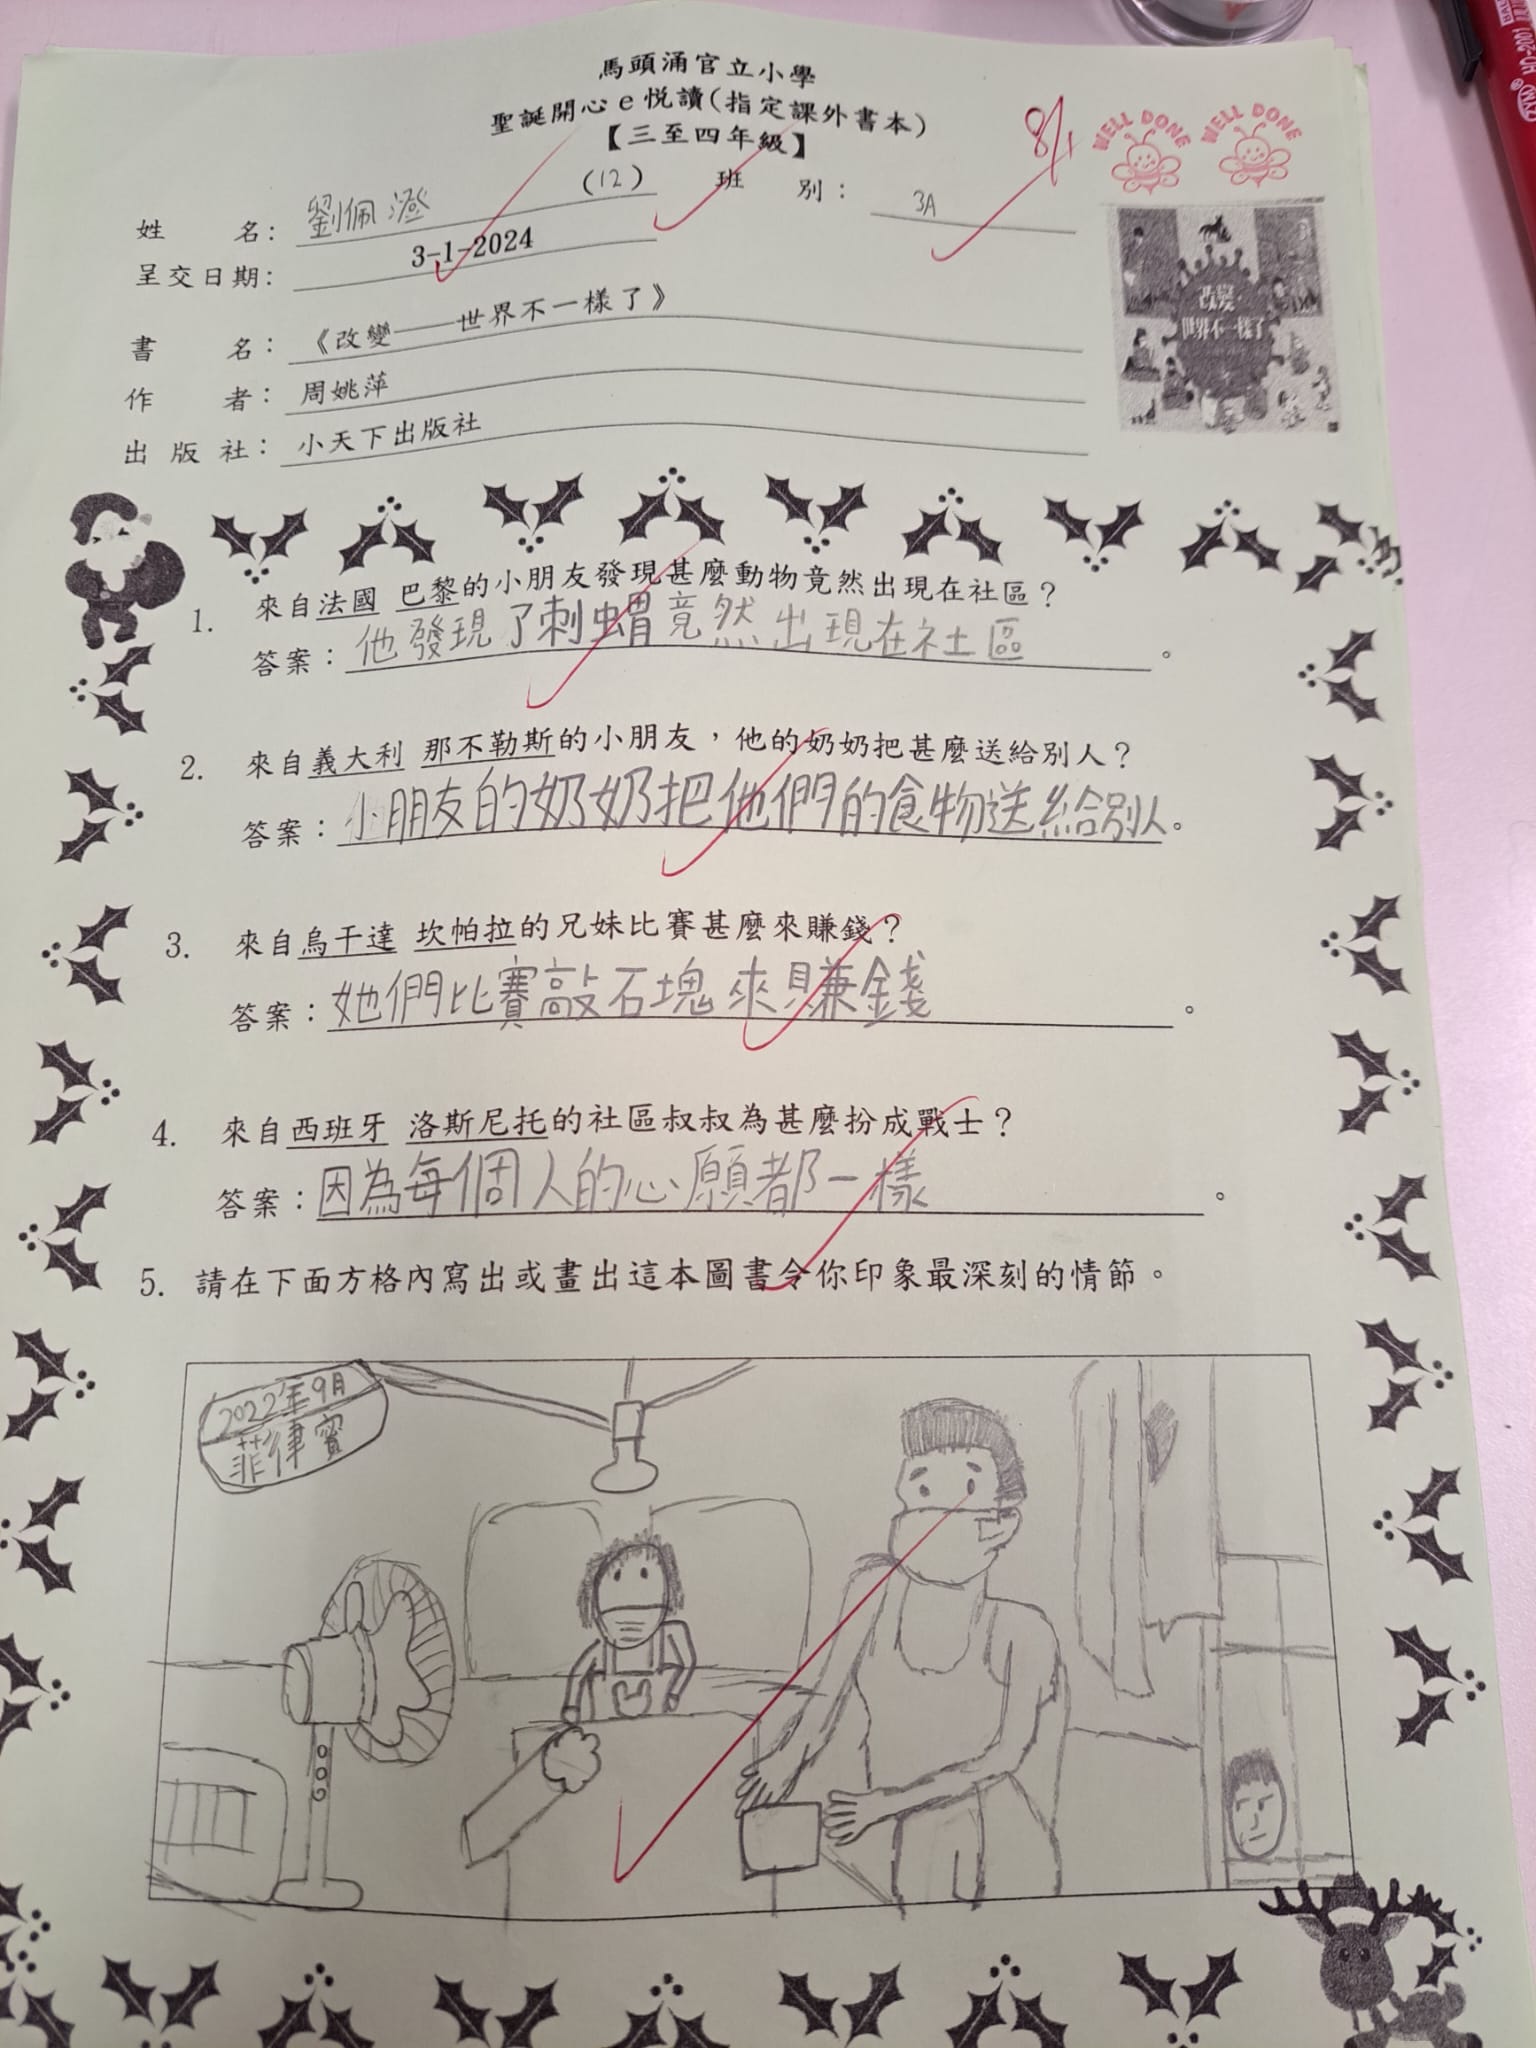 馬頭涌官立小學
聖誕開心e悅讀(指定課外書本)
【三至四年級】
8/1
WELL DONE
WELL DONE
姓名: 劉佩澄 (12) 班別: 3A
呈交日期: 3-1-2024
書名: 《改變——世界不一樣了》
作者: 周姚萍
出版社: 小天下出版社
改變
世界不一樣了
1. 來自法國 巴黎的小朋友發現甚麼動物竟然出現在社區?
答案: 他發現了刺蝟竟然出現在社區。
2. 來自義大利 那不勒斯的小朋友,他的奶奶把甚麼送給別人?
答案: 小朋友的奶奶把他們的食物送給別人。
3. 來自烏干達 坎帕拉的兄妹比賽甚麼來賺錢?
答案: 她們比賽敲石塊來賺錢。
4. 來自西班牙 洛斯尼托的社區叔叔為甚麼扮成戰士?
答案: 因為每個人的心願都一樣。
5. 請在下面方格內寫出或畫出這本圖書令你印象最深刻的情節。
2022年9月
菲律賓